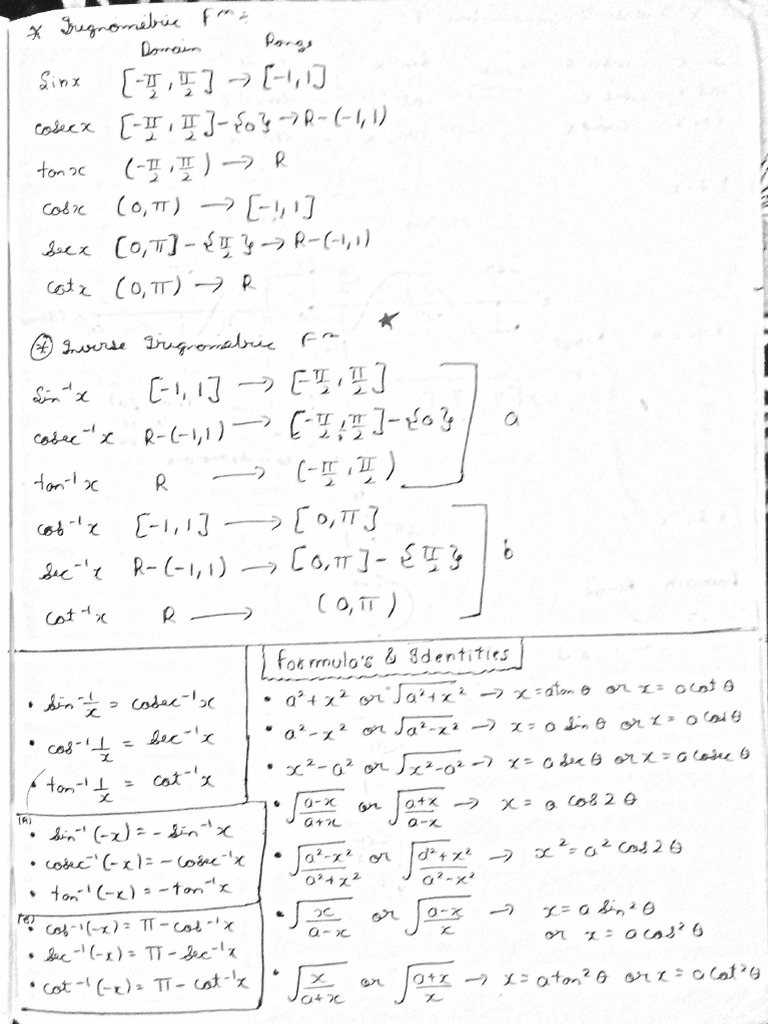 * Trignometric Fⁿ :
Domain Range
Sinx [-π/2, π/2] → [-1,1]
cosecx [-π/2, π/2]-{0} → R-(-1,1)
tanx (-π/2, π/2) → R
cosx (0,π) → [-1,1]
sec x [0,π]-{π/2} → R-(-1,1)
cotx (0,π) → R
★
* Inverse Trignometric Fⁿ
Sin⁻¹x [-1,1] → [-π/2, π/2]
cosec⁻¹x R-(-1,1) → [-π/2, π/2]-{0} a
tan⁻¹x R → (-π/2, π/2)
cos⁻¹x [-1,1] → [0,π]
sec⁻¹x R-(-1,1) → [0,π]-{π/2} b
cot⁻¹x R → (0,π)
• sin⁻¹ 1/x = cosec⁻¹x
• cos⁻¹ 1/x = sec⁻¹x
• tan⁻¹ 1/x = cot⁻¹x
(A)
• sin⁻¹(-x) = -sin⁻¹x
• cosec⁻¹(-x) = -cosec⁻¹x
• tan⁻¹(-x) = -tan⁻¹x
(B)
• cos⁻¹(-x) = π-cos⁻¹x
• sec⁻¹(-x) = π-sec⁻¹x
• cot⁻¹(-x) = π-cot⁻¹x
Formula's & Identities
• a²+x² or √(a²+x²) → x=atanθ or x=acotθ
• a²-x² or √(a²-x²) → x=a sinθ or x=acosθ
• x²-a² or √(x²-a²) → x=a secθ or x=acosecθ
• √((a-x)/(a+x)) or √((a+x)/(a-x)) → x = a cos2θ
• √((a²-x²)/(a²+x²)) or √((a²+x²)/(a²-x²)) → x²=a²cos2θ
• √(x/(a-x)) or √((a-x)/x) → x=a sin²θ
or x=acos²θ
• √(x/(a+x)) or √((a+x)/x) → x=atan²θ or x=acot²θ